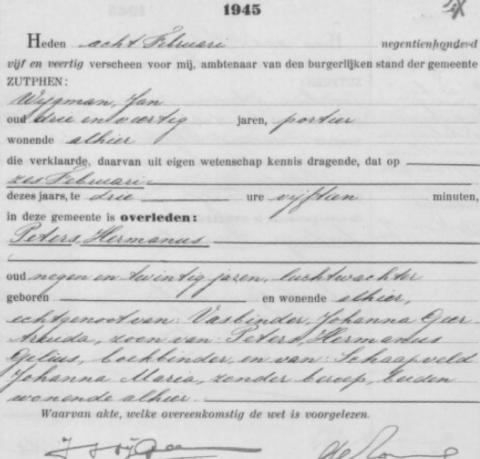 1945
Heden acht Februari negentienhonderd
vijf en veertig verscheen voor mij, ambtenaar van den burgerlijken stand der gemeente
ZUTPHEN:
Wijgman, Jan
oud drie en veertig jaren, portier
wonende alhier
die verklaarde, daarvan uit eigen wetenschap kennis dragende, dat op
zes Februari
dezes jaars, te drie ure vijftien minuten,
in deze gemeente is overleden:
Peters, Hermanus
oud negen en twintig jaren, luchtwachter
geboren en wonende alhier,
echtgenoot van: Vasbinder, Johanna Geer
truida, zoon van: Peters, Hermanus
Gelius, boekbinder, en van: Schaapveld
Johanna Maria, zonder beroep, beiden
wonende alhier.
Waarvan akte, welke overeenkomstig de wet is voorgelezen.